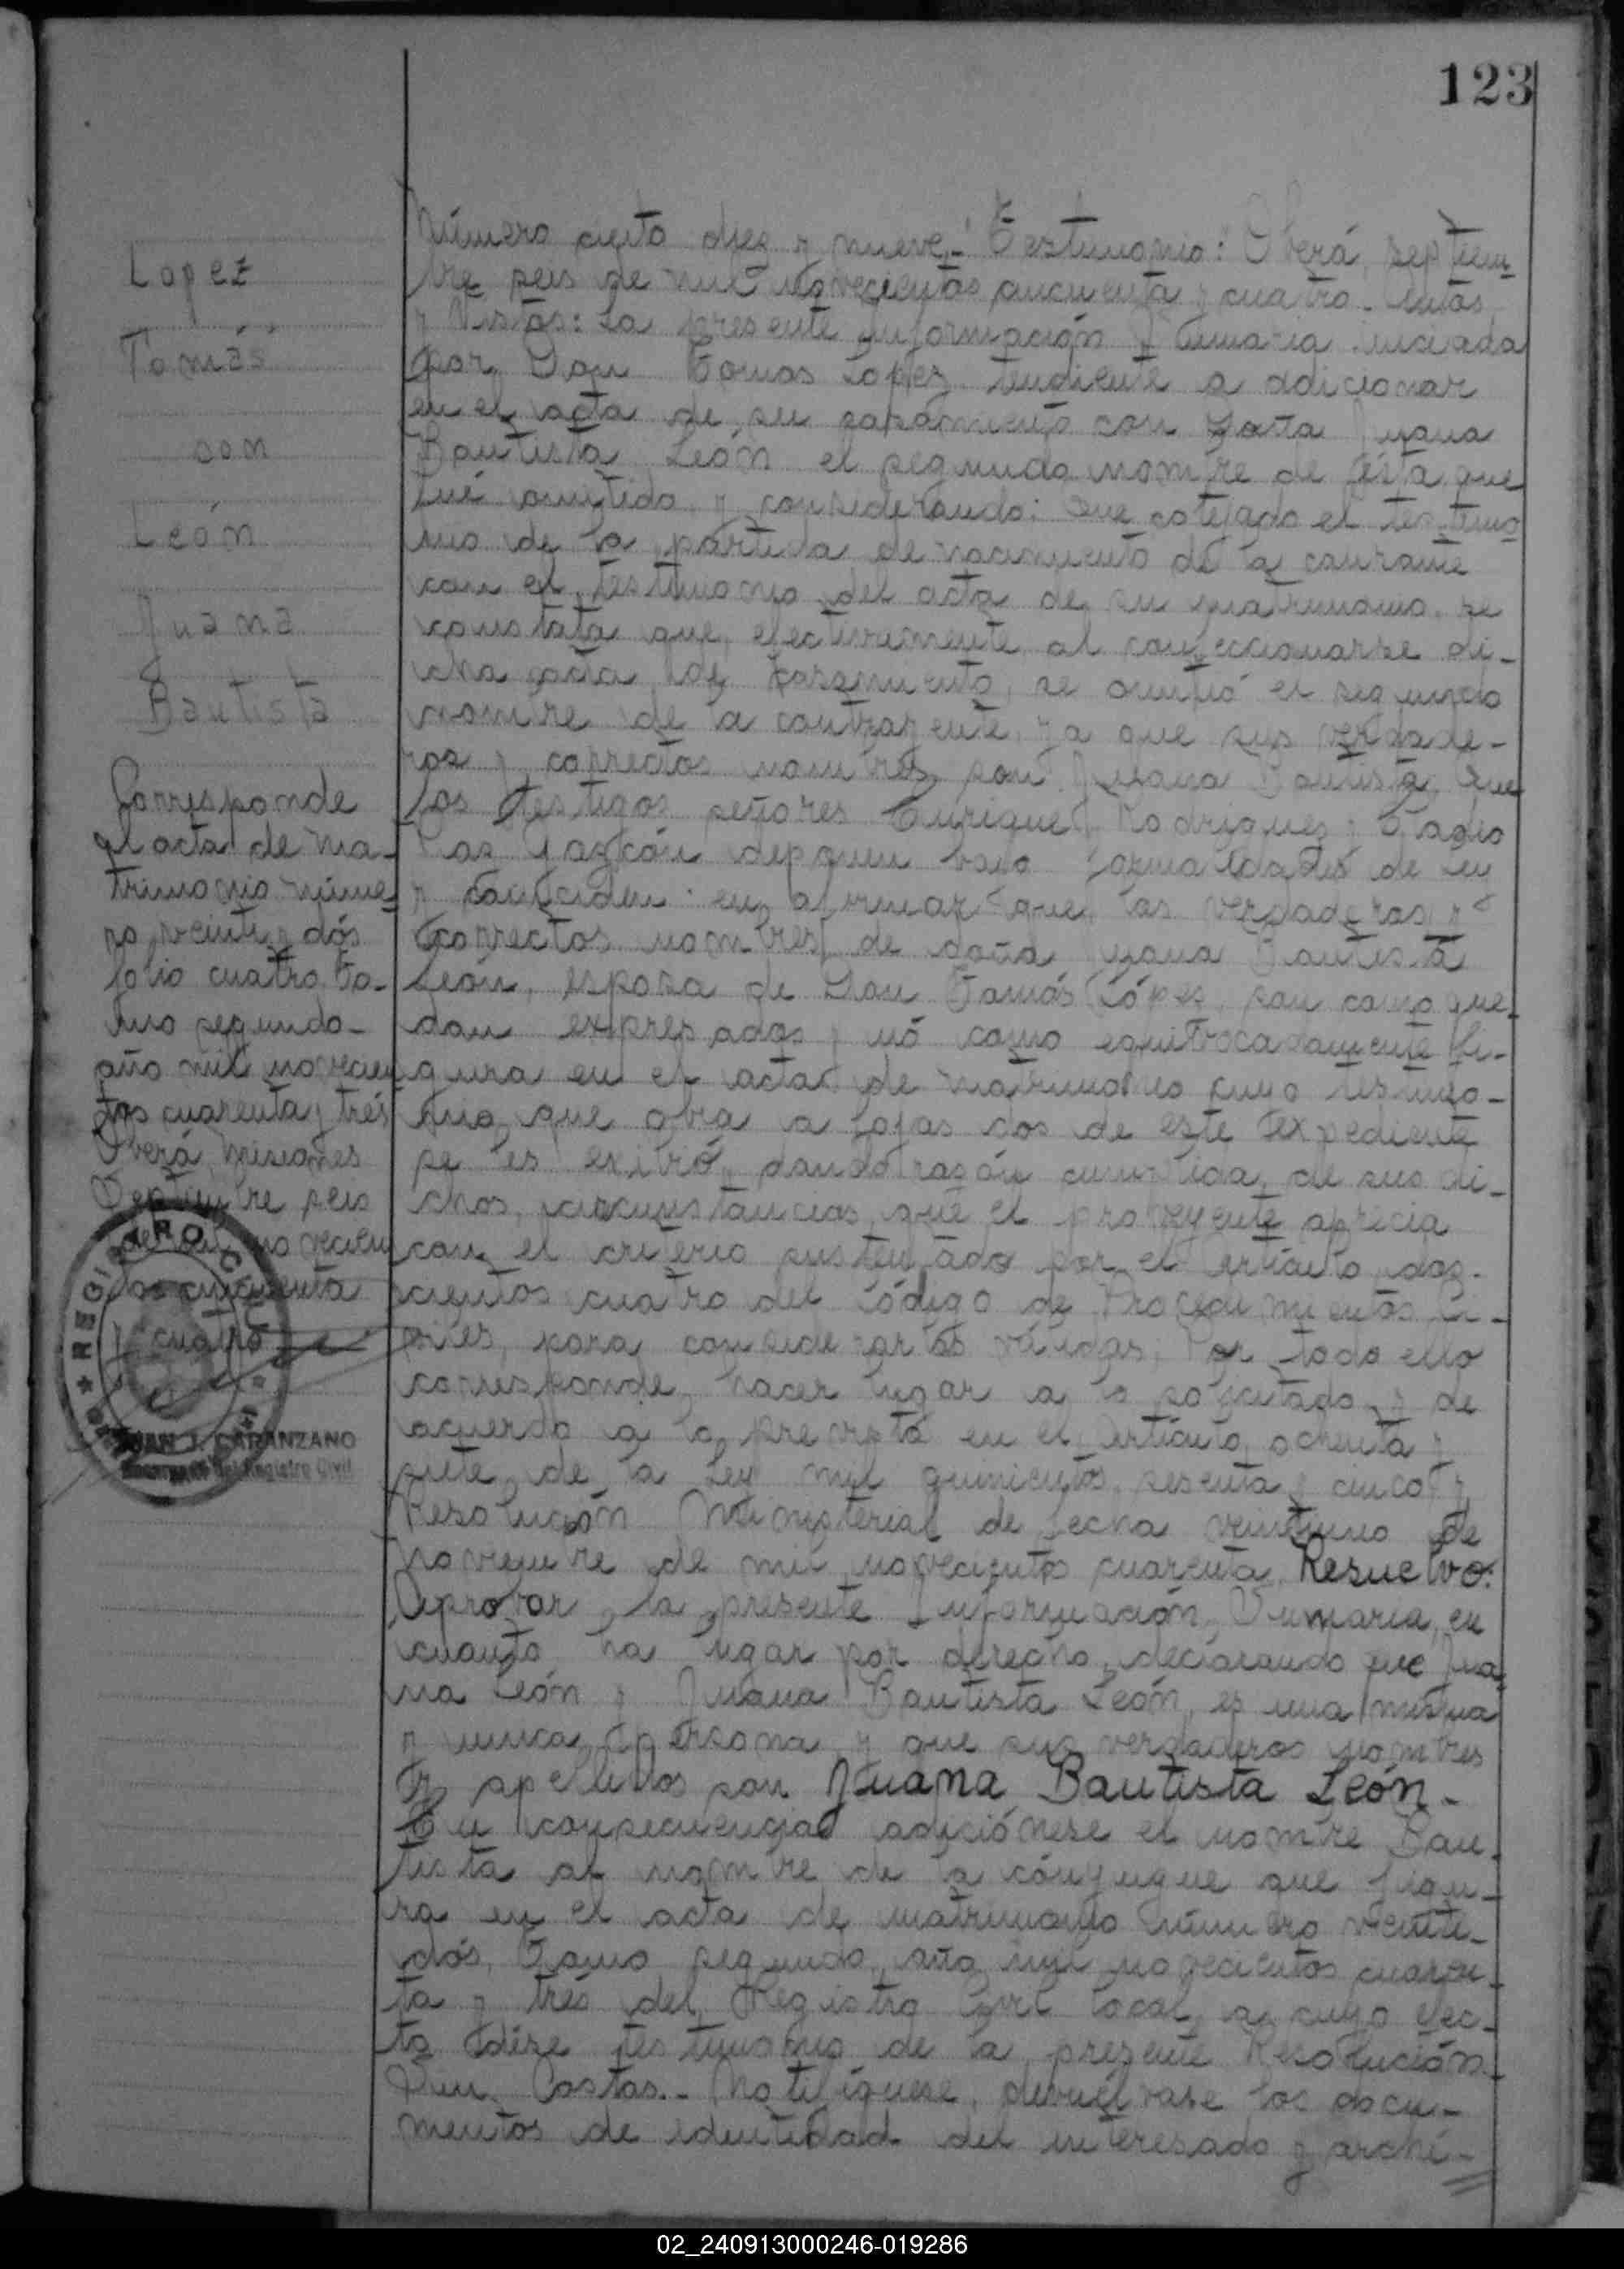 123
Lopez
Tomás
con
León
Juana
Bautista
Corresponde
al acta de ma-
trimonio núme-
ro veinti y dós
folio cuatro to-
mo segundo-
año mil novecien
tos cuarenta y trés
Oberá, Misiones
Septiembre seis
de mil novecien
tos cincuenta
y cuatro
REGISTRO CIVIL
JUAN J. CARANZANO
Encargado del Registro Civil
Número ciento diez y nueve.- Testimonio: "Oberá, septiem-
bre seis de mil novecientos cincuenta y cuatro. Autos
y Vistos: La presente Información Sumaria iniciada
por Don Tomas López tendiente a adicionar
en el acta de su casamiento con Doña Juana
Bautista León el segundo nombre de ésta que
fué omitido, y considerando: Que cotejado el testimo
nio de la partida de nacimiento de la causante
con el testimonio del acta de su matrimonio, se
constata que, efectivamente, al confeccionarse di-
cha acta de casamiento, se omitió el segundo
nombre de la contrayente, ya que sus verdade-
ros y correctos nombres son Juana Bautista, Que
los testigos señores Enrique Rodrigues y
Gazcón deponen bajo formalidades de ley
y coinciden en afirmar que los verdaderos y
correctos nombres de doña Juana Bautista
León, esposa de Don Tomás López, son como que-
dan expresados y nó como equivocadamente fi-
gura en el acta de matrimonio cuyo testimo-
nio, que obra a fojas dos de este expediente
se les exibió, dando razón cumplida de sus di-
chos, circunstancias que el proveyente aprecia
con el criterio sustentado por el artículo dos-
cientos cuatro del Código de Procedimientos Ci-
viles, para considerarlos válidas; Por todo ello
corresponde, hacer lugar a lo solicitado y de
acuerdo a lo prevista en el artículo ochenta y
siete de la Ley mil quinientos sesenta y cinco y
Resolución Ministerial de fecha veintiuno de
noviembre de mil novecientos cuarenta, Resuelvo:
Aprobar la presente Información Sumaria, en
cuanto ha lugar por derecho, declarando que Jua-
na León y Juana Bautista León, es una misma
y unica persona y que sus verdaderos nombres
y apellidos son Juana Bautista León.-
En consecuencia adiciónese el nombre Bau-
tista al nombre de la cónyugue que figu-
ra en el acta de matrimonio número veinti-
dós, Tomo segundo, año mil novecientos cuaren-
ta y trés del Registro Civil local, a cuyo efec-
to dése testimonio de la presente Resolución.-
Sin Costas.- Notifíquese, devuélvase los docu-
mentos de identidad del interesado y archí-
02_240913000246-019286